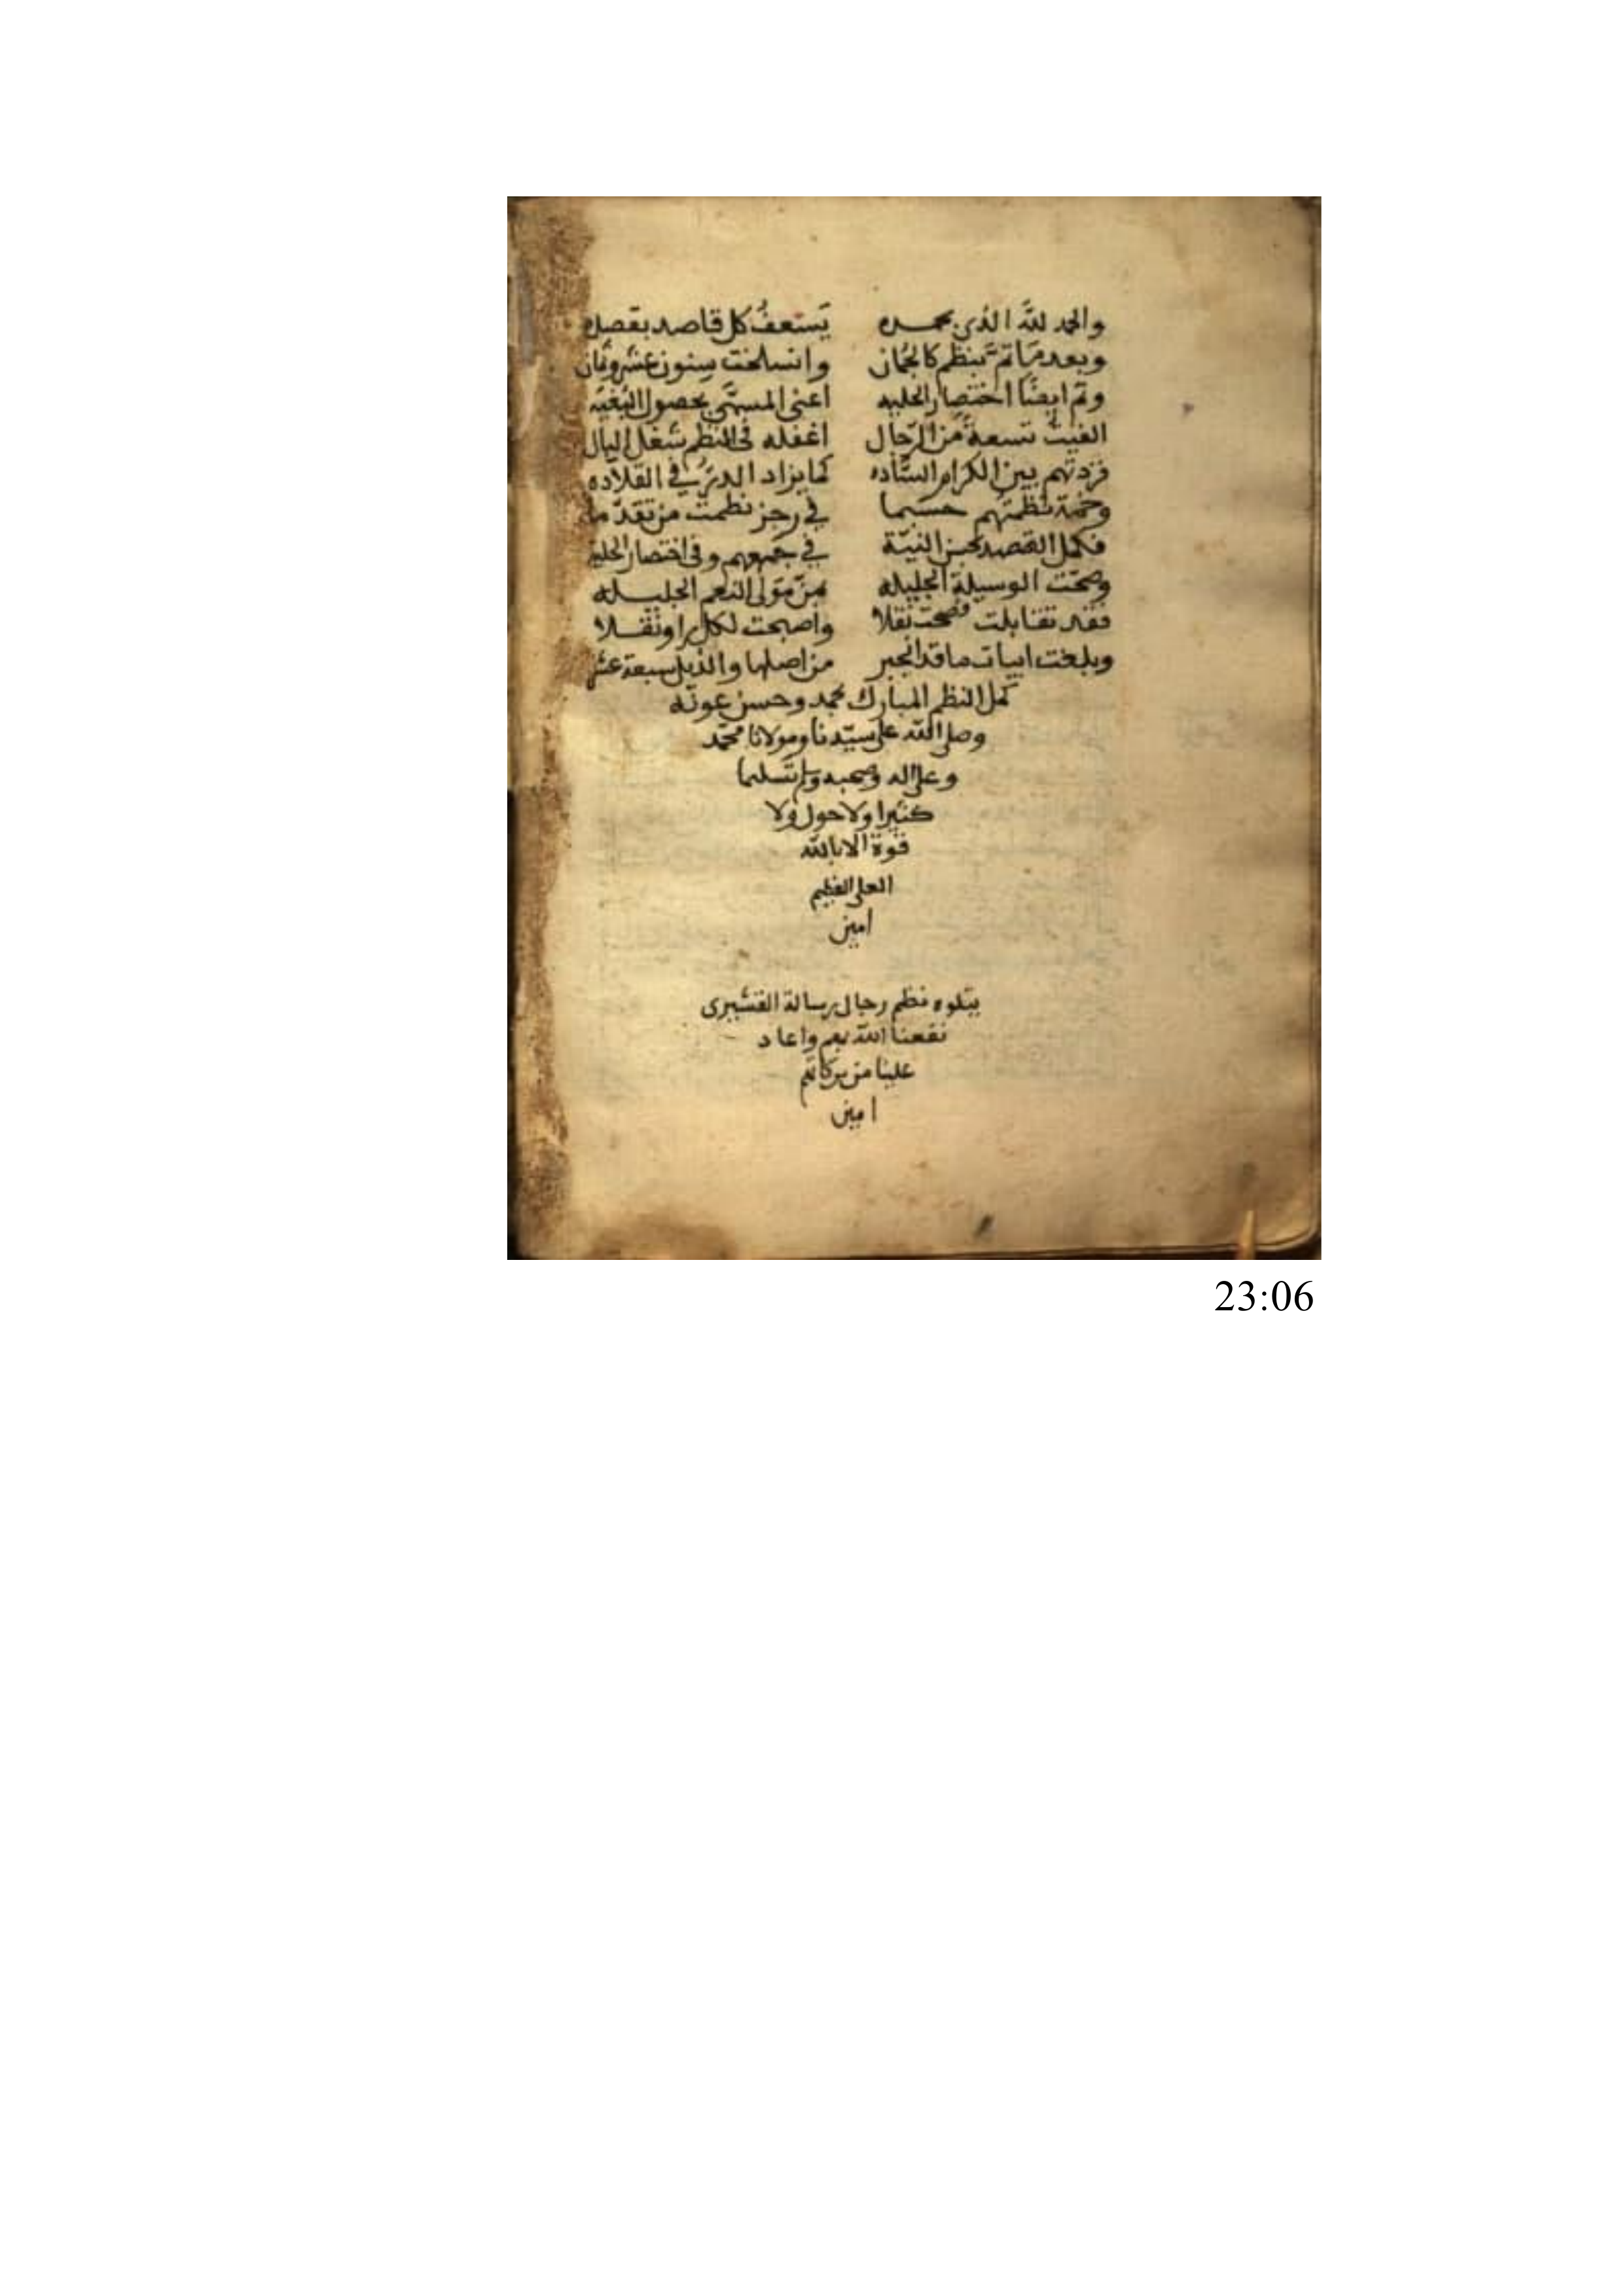 والحمد لله الذي بحمده يستعف كل قاصد بقصده
وبعد ما تم بنظم كالجمان وانسلخت سنون عشر وثمان
وتم ايضا اختصار الحليه اعني المسمى بحصول البغيه
الفيت تسعة من الرجال اغفله في النظم شغل البال
فزدتهم بين الكرام الساده كما يزاد الدر في القلاده
وخمسة نظمتهم حسبما في رجز نظمت من تقدما
فكمل القصد بحسن النية في جمعهم وفي اختصار الحلية
وصحت الوسيلة الجليله من مولى النعم الجليله
فقد تقابلت فصحت نقلا واصبحت لكل
وبلغت ابيات ما قد انجبر من اصلها والذيل سبعة عشر
كمل النظم المبارك بحمد وحسن عونه
وصلى الله على سيدنا ومولانا محمد
وعلى اله وصحبه وسلم تسليما
كثيرا ولا حول ولا
قوة الا بالله
العلي العظيم
امين
يتلوه نظم رجال رسالة القشيرى
نفعنا الله بهم واعاد
علينا من بركاتهم
امين
23:06